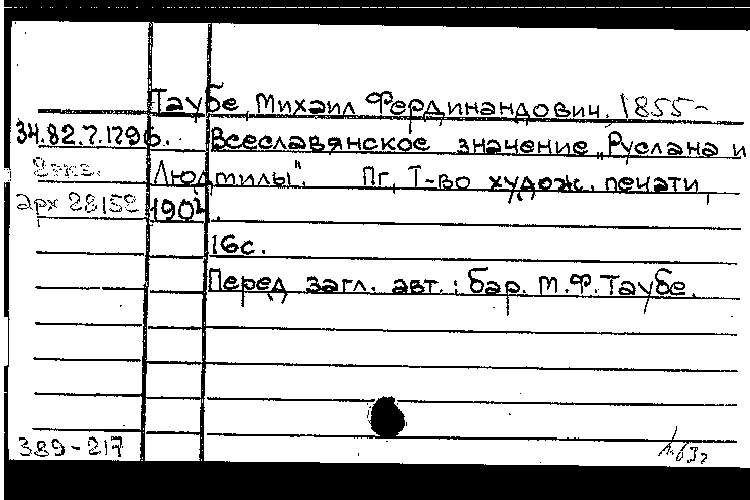 Таубе, Михаил Фердинандович, 1855-
34.82.7.1296. Всеславянское значение „Руслана и
2 экз. Людмилы". Пг, Т-во худож. печати,
арх 28152 1904.
16с.
Перед загл. авт.: бар. М.Ф.Таубе.
389-217